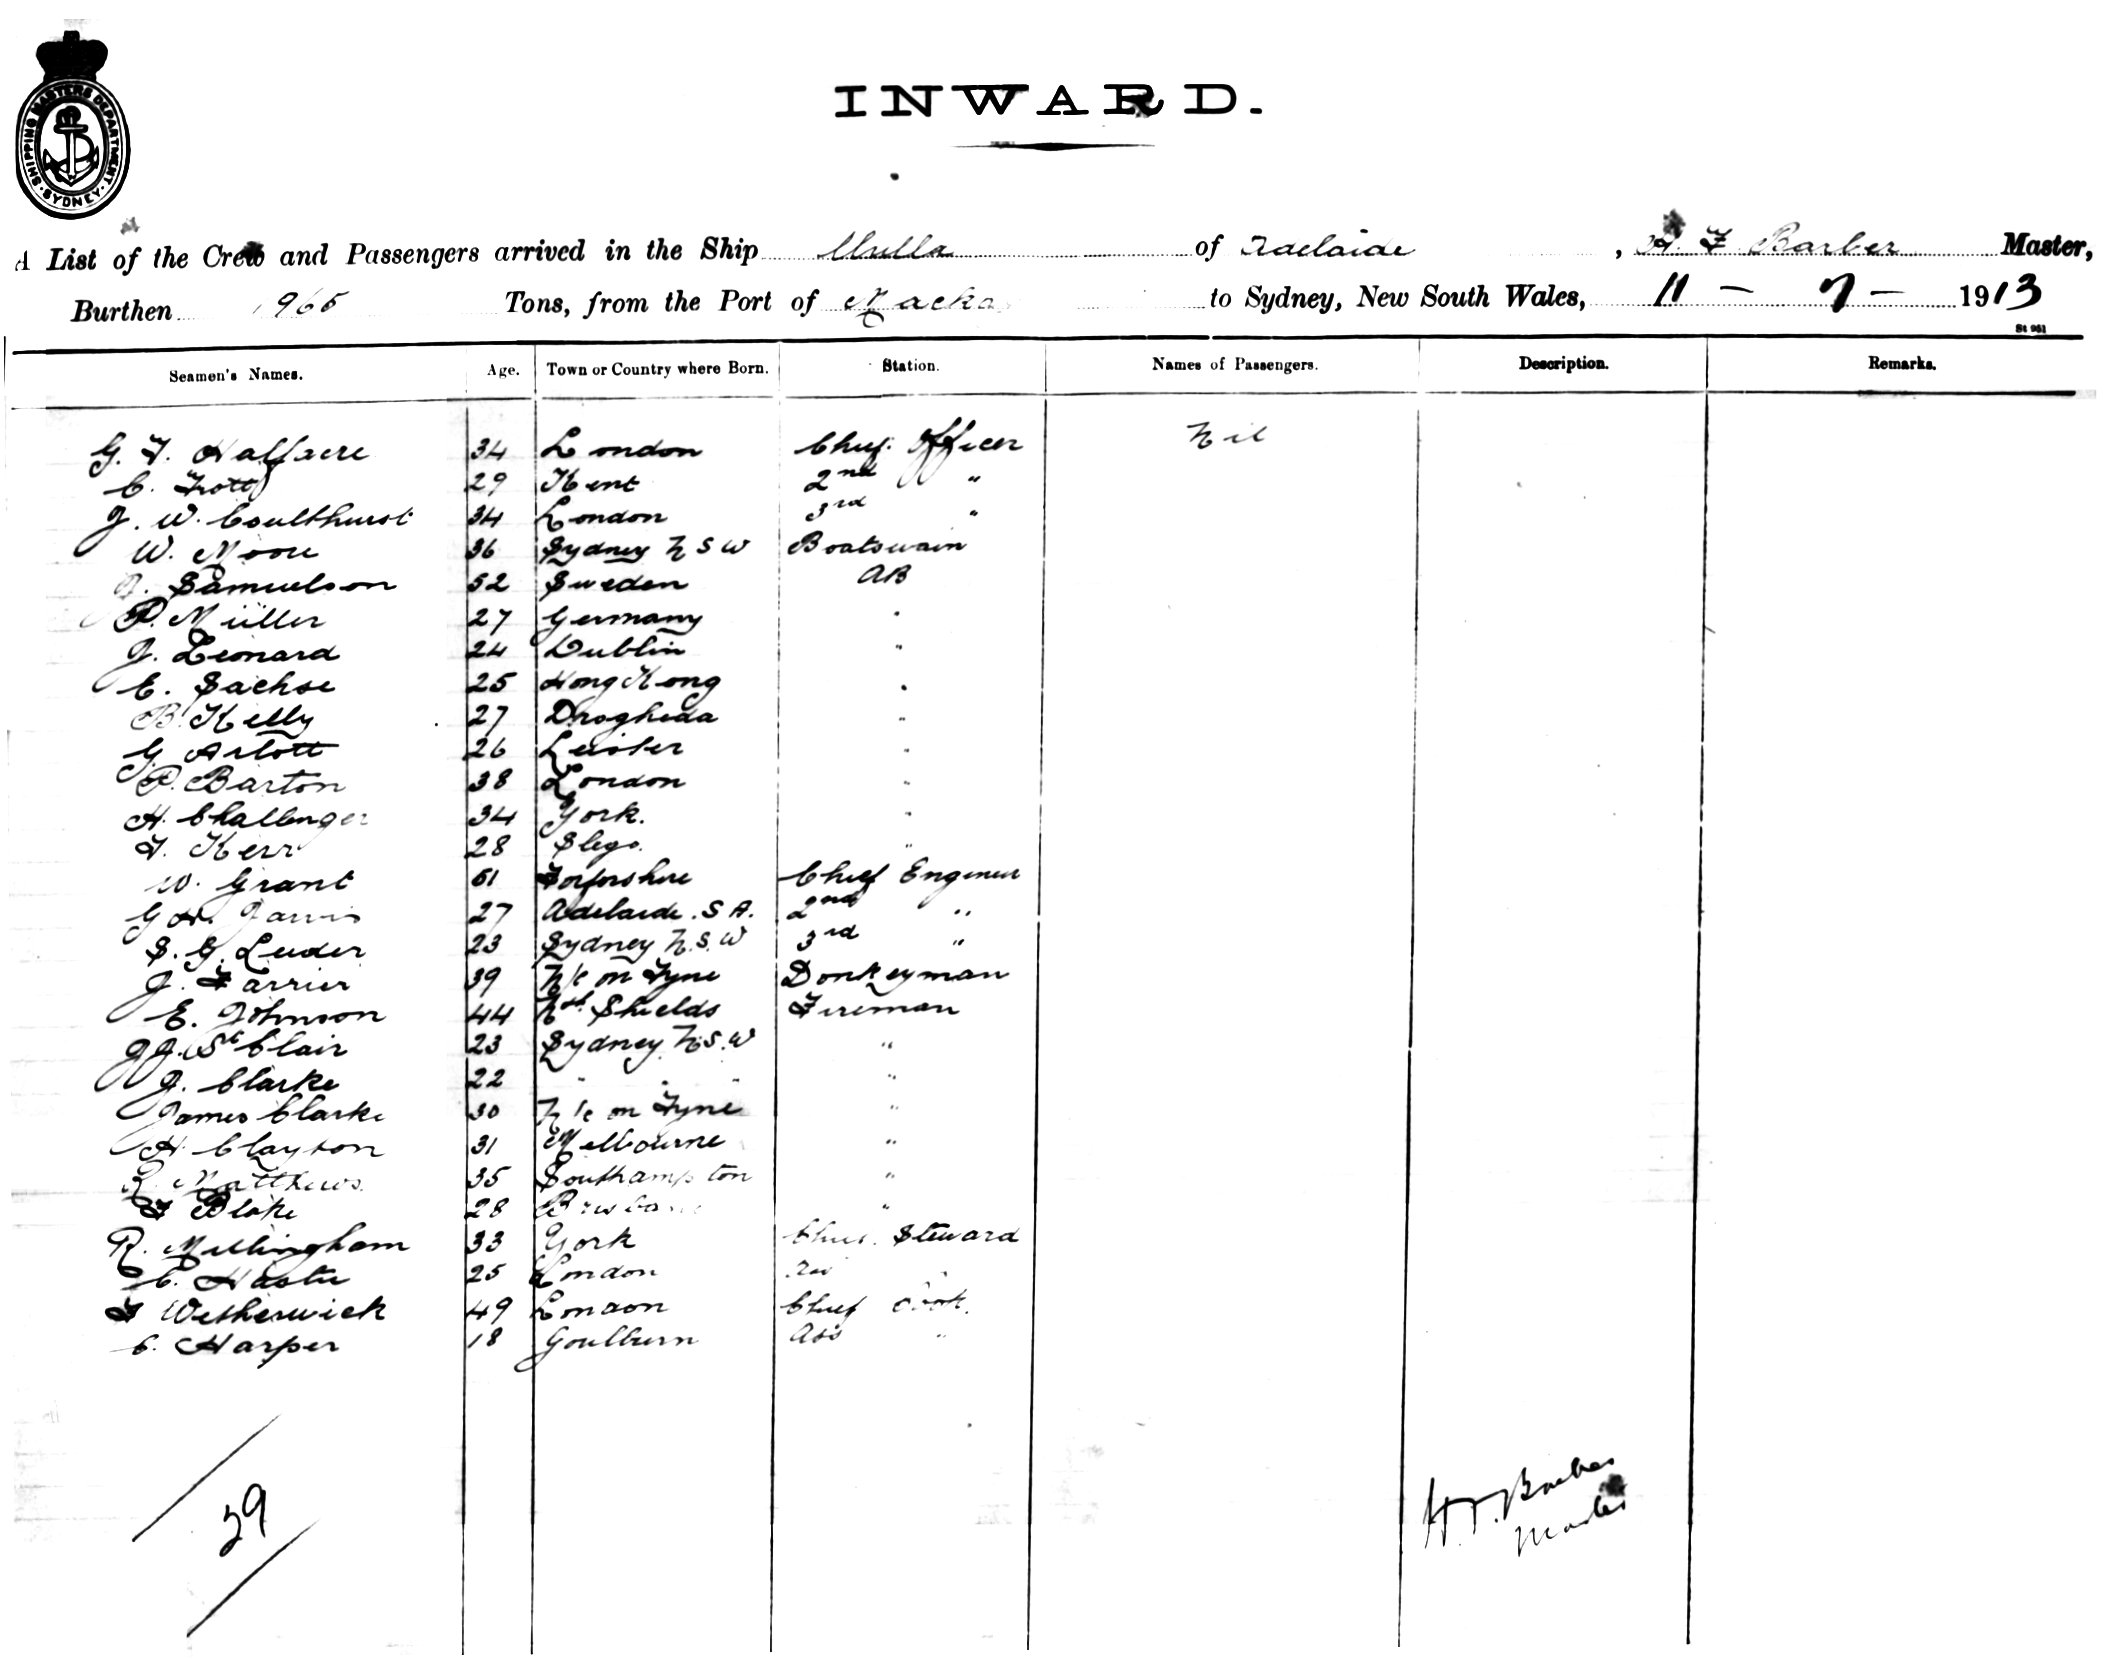 SHIPPING MASTERS DEPARTMENT · SYDNEY ·
INWARD.
A List of the Crew and Passengers arrived in the Ship Ululla of Adelaide, H F Barber Master,
Burthen 965 Tons, from the Port of Macka to Sydney, New South Wales, 11 - 7 - 1913
St 961
Seamen's Names. Age. Town or Country where Born. Station. Names of Passengers. Description. Remarks.
G. F. Halfacre 34 London Chief Officer Nil
C. Trott 29 Kent 2nd "
J. W. Coulthurst 34 London 3rd "
W. Moore 36 Sydney N S W Boatswain
J. Samuelson 52 Sweden AB
P. Müller 27 Germany "
J. Leonard 24 Dublin "
E. Sachse 25 Hong Kong "
B. Kelly 27 Drogheda "
G. Arlott 26 Leister "
P. Barton 38 London "
H. Challenger 34 York. "
F. Kerr 28 Sligo. "
W. Grant 61 Forforshire Chief Engineer
G H. Jarvis 27 Adelaide. S A. 2nd "
S. G. Leuder 23 Sydney N.S.W 3rd "
J. Farrier 39 N/c on Tyne Donkeyman
E. Johnson 44 Nth Shields Fireman
J J. St Clair 23 Sydney N.S.W "
J. Clarke 22 " " " "
James Clarke 30 N/c on Tyne "
H. Clayton 31 Melbourne "
R. Matthews 35 Southampton "
F Blake 28 Brisbane "
R. Millingham 33 York Chief Steward
C. Hastie 25 London "
F Wetherwick 49 London Chief Cook.
C. Harper 18 Goulburn Ass "
29
H.F. Barber
Master